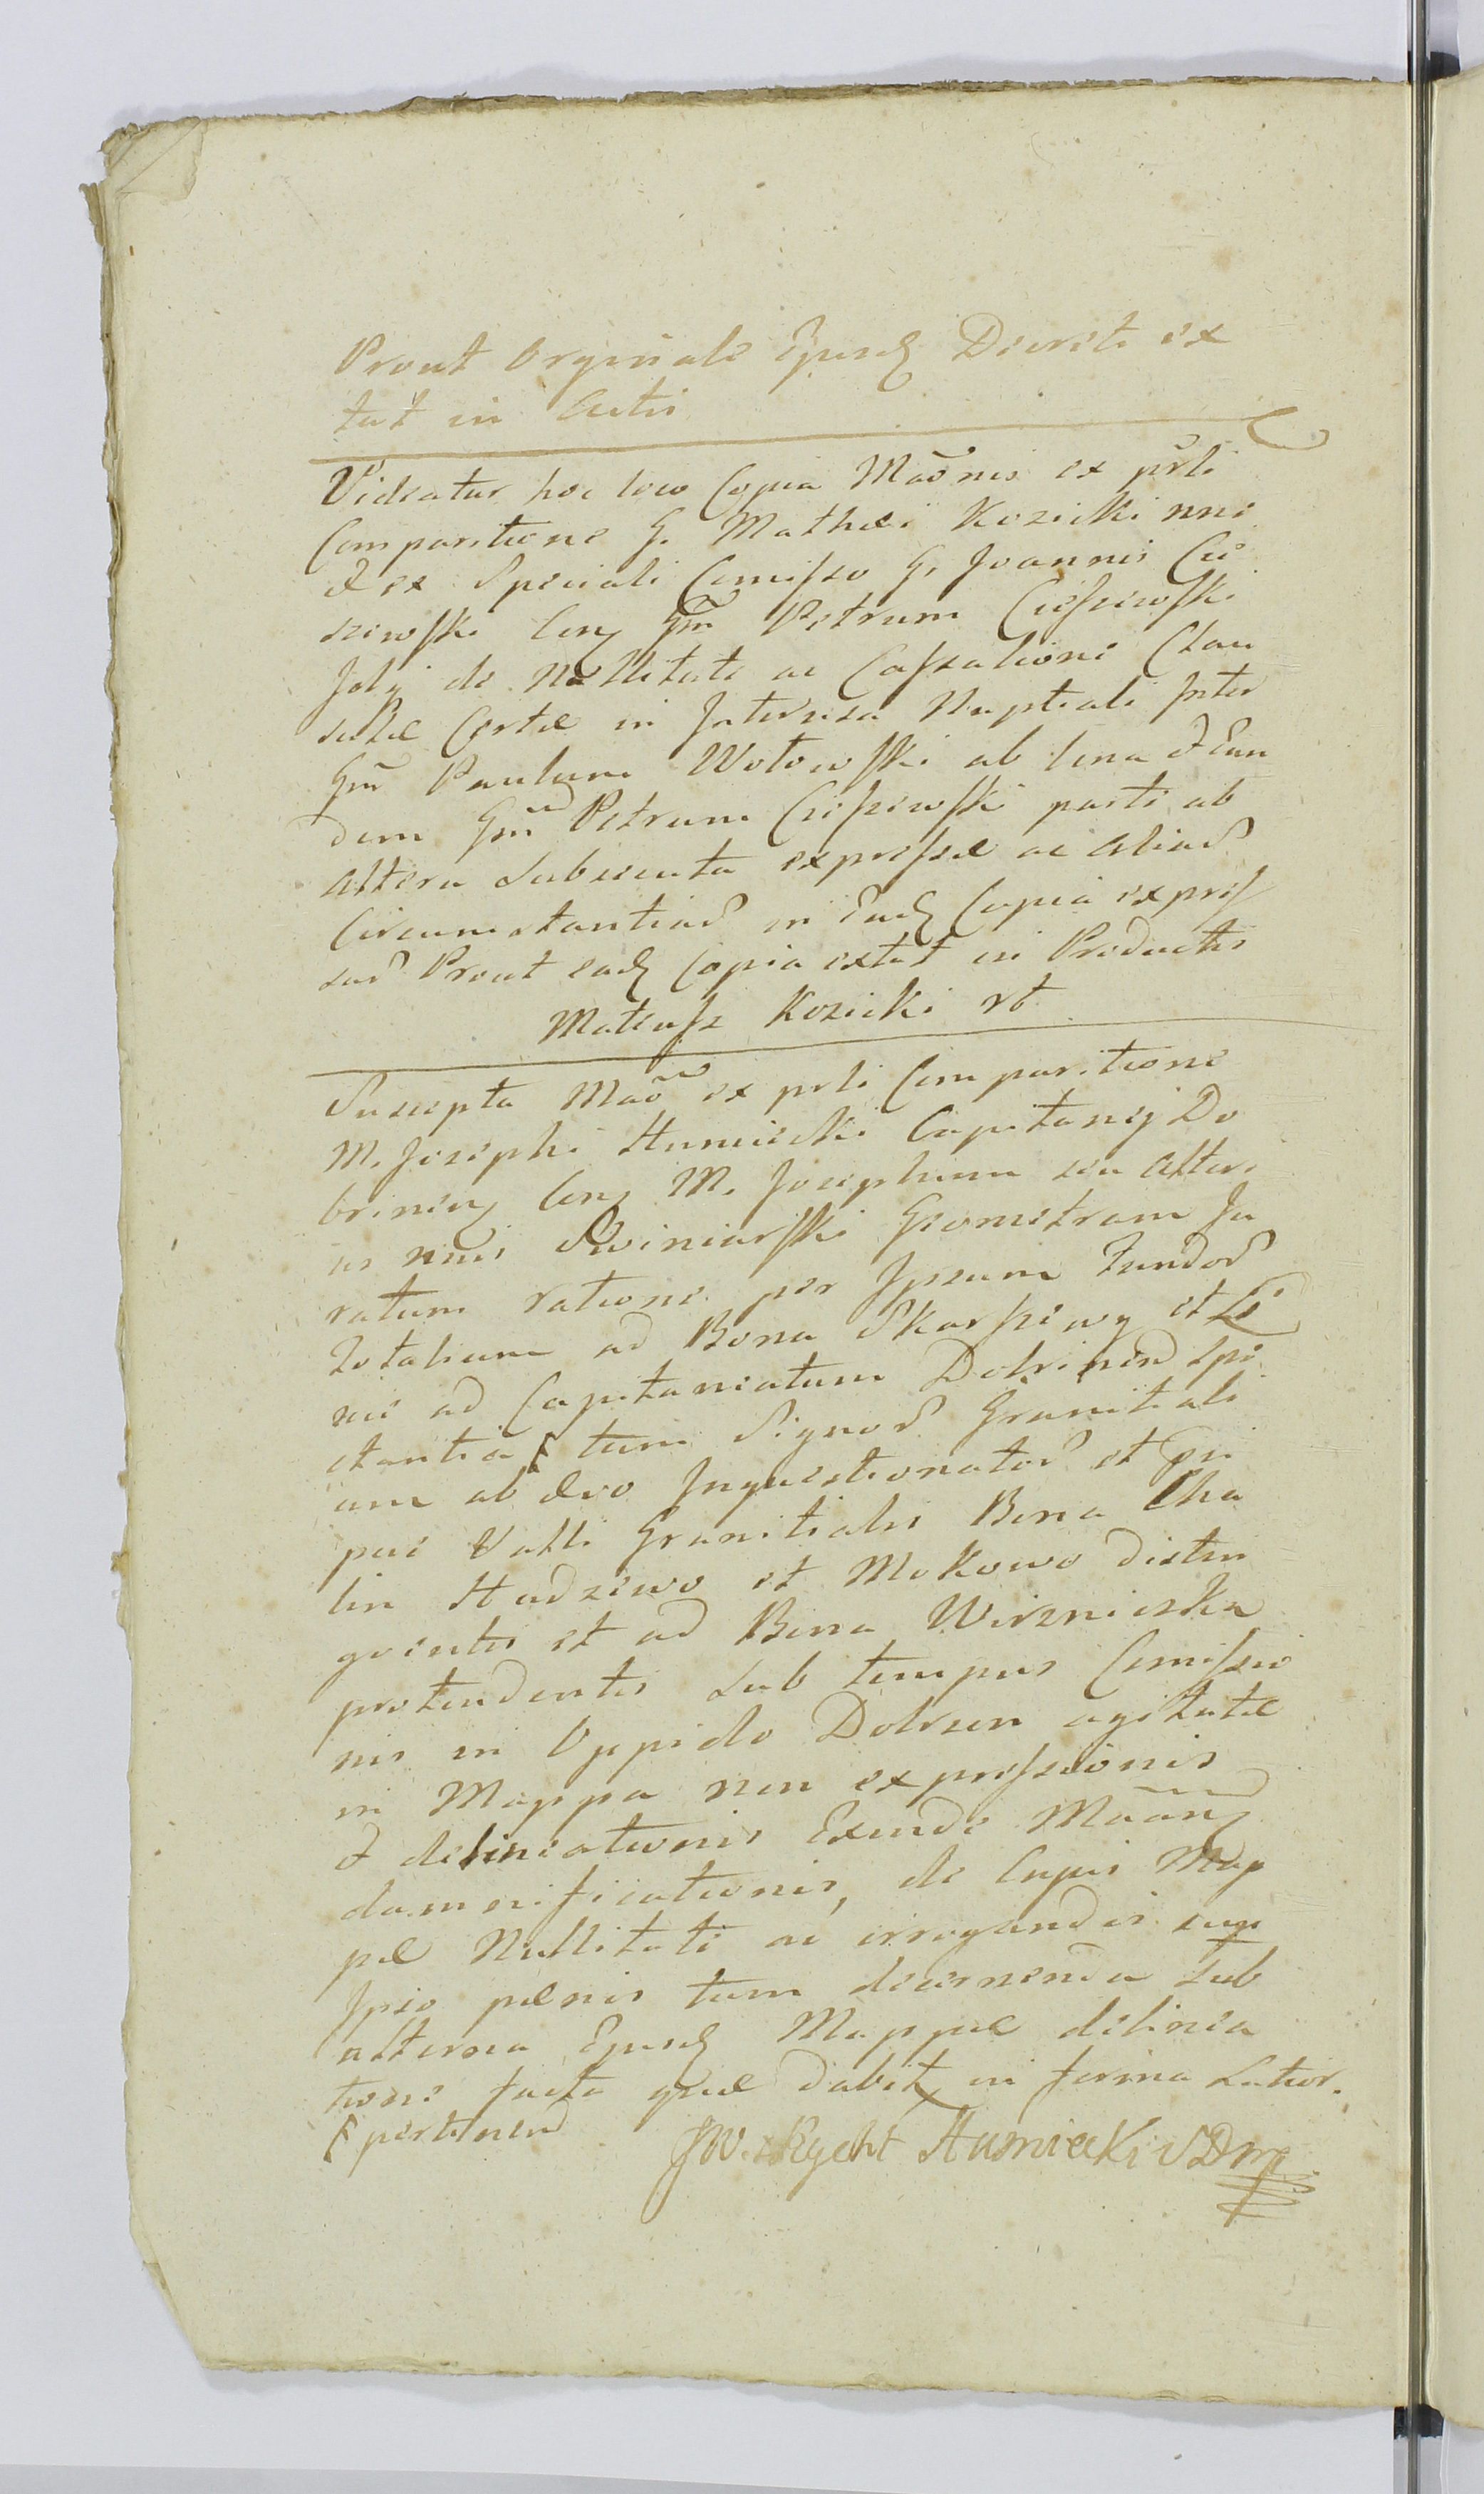 Prout Orginale Ejusd Decreti ex
tat in Actis
Videatur hoc loco Copia Mãonis ex prãli
Comparitione G. Mathæi Kozicki nne
& ex Speciali Comisso G. Joannis Cie
szewski Cony Gm̃ Petrum Cieszewski
foly de Nullitate ac Cassatione Clau
sulæ Certæ in Intercisa Nuptiali Inter
Gm̃ Paulum Wolowski ab Una & Eun
dem Gm̃ Petrum Cieszewski parte ab
Altera Subsecuta expressæ ac aliad
Circumstantiad in Ead Copia expres
sad Prout ead Copia extat in Productis
Mateusz Kozicki rt
Suscepta Mão ex prli Comparitione
M. Josephi Humiecki Capitanej Do
brinen Cony M. Josephum seu Alteri
us nnis Swiniarski Geometram Ju
ratum ratione per Ipsum Fundod
Totalium ad Bona Skarszewy et Li
nie ad Capitaneatum Dobrinen spe
ctantia tum Signod Graniciali
um ab ævo Inquestionatod et præ
pue Valli Granitialis Bona Cha
lin Hadzewo et Mokowo distin
gventis et ad Bona Wierznicska
protendentis Sub tempus Comissio
nis in Oppido Dobrzen agitatæ
in Mappa non expressionis
& delineationis Exinde Mãan
damnificationis, de Cujus Map
pæ Nullitate ac irrogandis sup
Ipso pænis tum decernenda Sub
alterna Ejusd Mappæ delinea
tione facta quæ dabit in forma Latior.
pertinen JW. Regent Humiecki SDmp